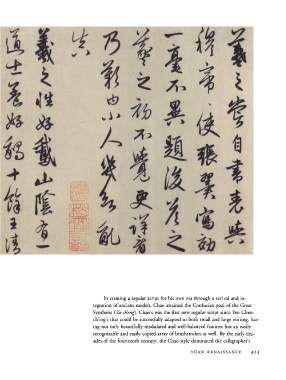 羲之嘗自書表與
穆帝使張翼寫効
一毫不異題後答之
羲之初不覺更詳看
乃歎曰小人幾欲亂
真
羲之性好鵞山陰有一
道士養好鵞十餘王清
In creating a regular script for his own era through a revival and in-
tegration of ancient models, Chao attained the Confucian goal of the Great
Synthesis (Ta-ch'eng). Chao's was the first new regular script since Yen Chen-
ch'ing's that could be successfully adapted to both small and large writing, hav-
ing not only beautifully modulated and well-balanced features but an easily
recognizable and easily copied array of brushstrokes as well. By the early dec-
ades of the fourteenth century, the Chao style dominated the calligrapher's
YÜAN RENAISSANCE 423